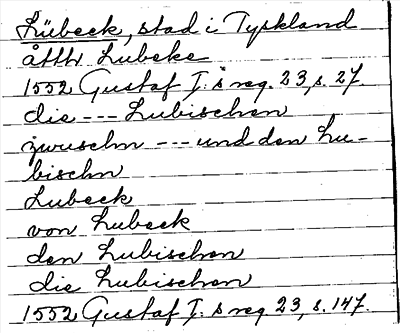 Lübeck, stad i Tyskland
åttr Lubeke
1552 Gustaf I:s reg. 23, s. 27.
die --- Lubischen
zwuschn --- und den Lu-
bischn
Lubeck
von Lubeck
den Lubischen
die Lubischen
1552 Gustaf I:s reg 23, s. 147.